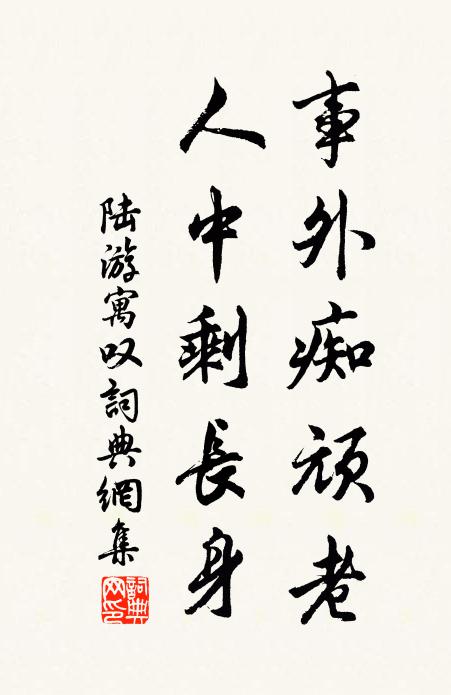 事外痴頑老
人中剩長身
陆游寓叹詞典網集
詞典網印